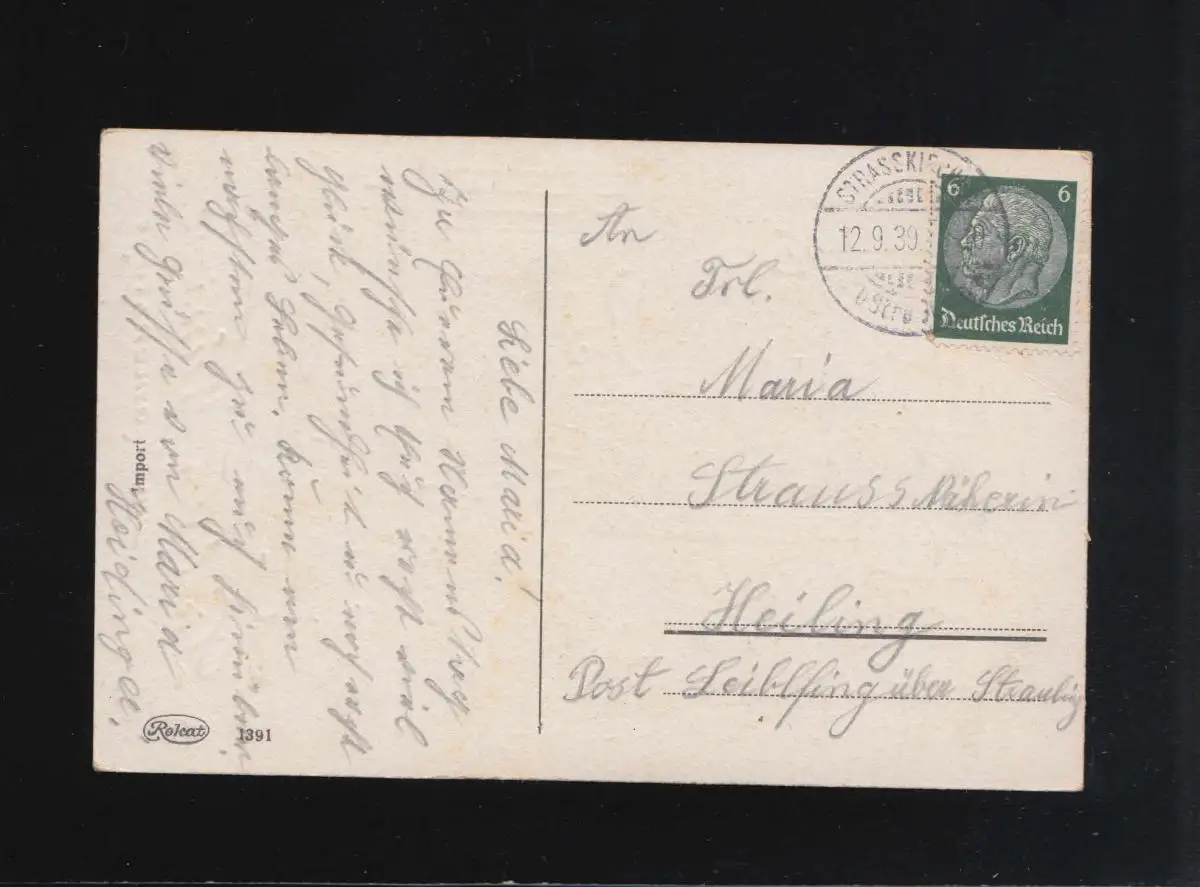 Liebe Maria!
Zu Eurem Namenstag
wünsche ich Euch recht viel
Glück, Gesundheit u. noch recht
langes Leben. Komm nun
zu auch
Viele Grüsse von Maria
Heidinger.
Import
Rokat
1391
An
Frl.
Maria
Strauss Näherin
Heiling
Post Leiblfing über Straubing
STRASSKIRCH
12.9.39.
6 6
Deutsches Reich